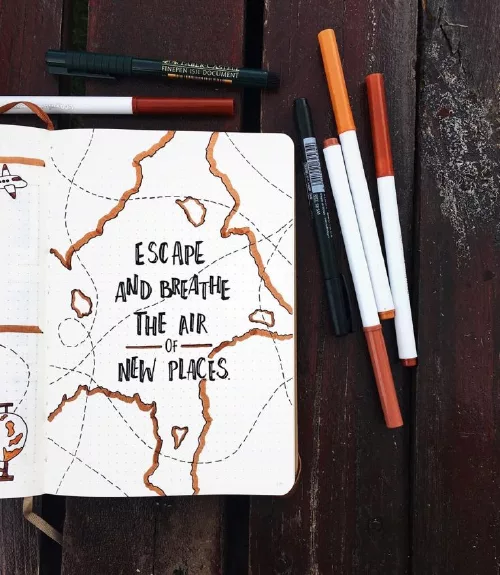 FABER CASTELL
FINEPEN 1511 DOCUMENT
ESCAPE
AND BREATHE
THE AIR
OF
NEW PLACES.